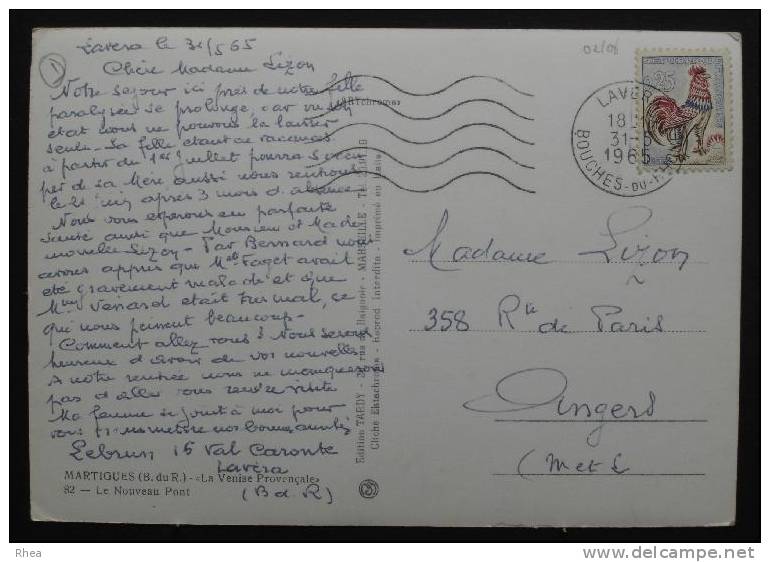 Lavera le 31/5 65
Chère Madame Lizon
Notre séjour ici près de notre fille
paralysée se prolonge, car vu son
état nous ne pouvons la laisser
seule. Sa fille étant en vacances
à partir du 1er Juillet pourra s'occu
per de sa Mère, aussi nous rentrons
le après 3 mois d'absence
Nous vous espérons en parfaite
santé ainsi que Monsieur et Made
moiselle Lizon - Par Bernard nous
avons appris que Melle Faget avait
été gravement malade et que
Mme était mal, ce
qui nous peinent beaucoup -
Comment allez vous ? Nous serons
heureux d'avoir de vos nouvelles
A notre rentrée nous ne manquerons
pas d'aller vous rendre visite
Ma femme se joint à moi pour
vous transmettre nos bonnes amitiés
Lebrun 15 Val Caronte
Lavéra
(B d. R)
MARTIGUES (B. du R.) - «La Venise Provençale»
82 — Le Nouveau Pont
Edition TARDY - MARSEILLE - Tél.
Cliché Ektachrome - Reprod. Interdite - Imprimé en Italie
02/08
LAVERA
18
31-5
1965
BOUCHES-DU-RH
0,25
Madame Lizon
358 Rue de Paris
Angers
(M et L
Rhea
www.delcampe.net